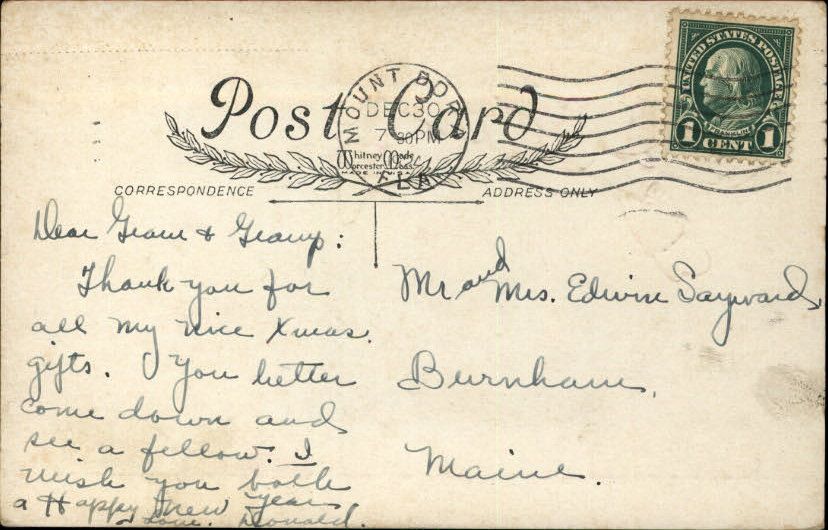 Post Card
Whitney Made
Worcester, Mass.
MADE IN U.S.A.
MOUNT DOR
DEC 30
7 30 PM
FLA
UNITED STATES POSTAGE
FRANKLIN
1 CENT 1
CORRESPONDENCE
ADDRESS ONLY
Dear Gram & Gramp:
Thank you for
all my nice Xmas.
gifts. You better
come down and
see a fellow. I
wish you both
a Happy New Year
Love. Donald.
Mr and Mrs. Edwin Sayward,
Burnham,
Maine.